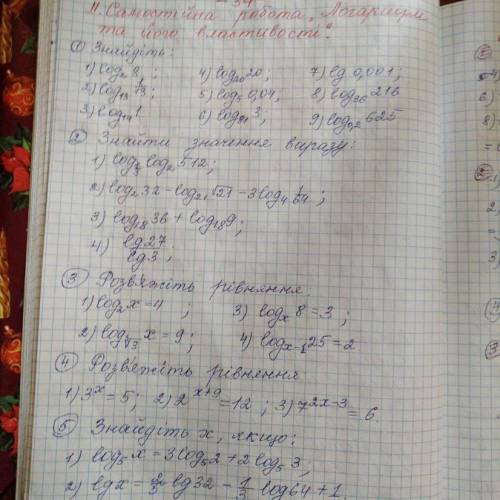 11. Самостійна робота „Логарифм
та його властивості“
① Знайдіть:
1) log₂8; 4) log₂₀20; 7) lg 0,001;
2) log₁₃ 1/13; 5) log₅ 0,04; 8) log₃₆ 216
3) log₁₄1 6) log₈₁ 3; 9) log₀,₂ 625
② Знайти значення виразу:
1) log₃ log₂ 512;
2) log₂32 - log₂₁√21 - 3log₄ 1/64;
3) log₁₈36 + log₁₈9;
4) lg27/lg3;
③ Розв'яжіть рівняння:
1) log₂x=4; 3) logₓ 8=3;
2) log_√3 x=9; 4) logₓ₋₁25=2
④ Розв'яжіть рівняння
1) 3ˣ=5; 2) 2ˣ⁺⁹=12; 3) 7²ˣ⁻³=6
⑤ Знайдіть x, якщо:
1) log₅x=3log₅2+2log₅3,
2) lgx= 2/5 lg32 - 1/3 log64+1